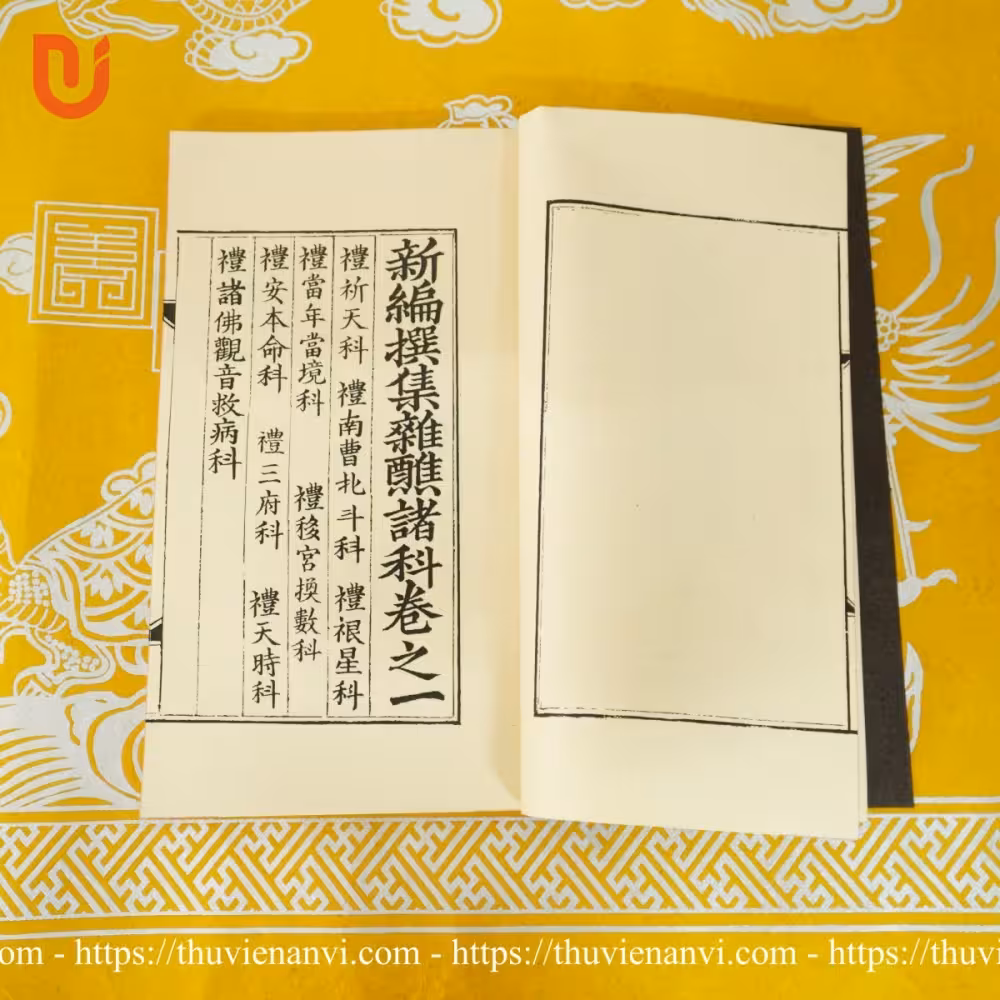 新編撰集雜醮諸科卷之一
禮祈天科 禮南曹北斗科 禮根星科
禮當年當境科 禮移宮換數科
禮安本命科 禮三府科 禮天時科
禮諸佛觀音救病科
om - https://thuvienanvi.com - https://thuvienanvi.com - https://thuvi